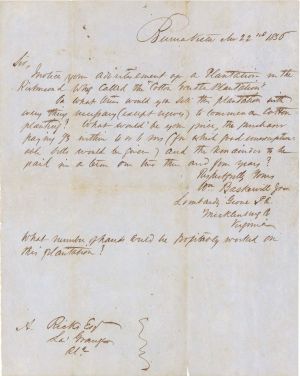 Buena Vista Nov 22nd 1836
Sir,
I notice your advertisement of a Plantation in the
Richmond Whig called the Cotton Plantation?
On what terms would you sell the plantation with
every thing necessary (except negroes) to commence a Cotton
planting? What would be your price, the purchaser
paying in within (for which good
would be given) and the remainder to be
paid in a term one two three and four years?
Respectfully Yours
Wm Baskervill Junr
Lombardy Grove P.O.
Mecklenburg
Virginia
What number of hands could be profitably worked on
this plantation?
A. Ricks Esqr
La Grange
Ala